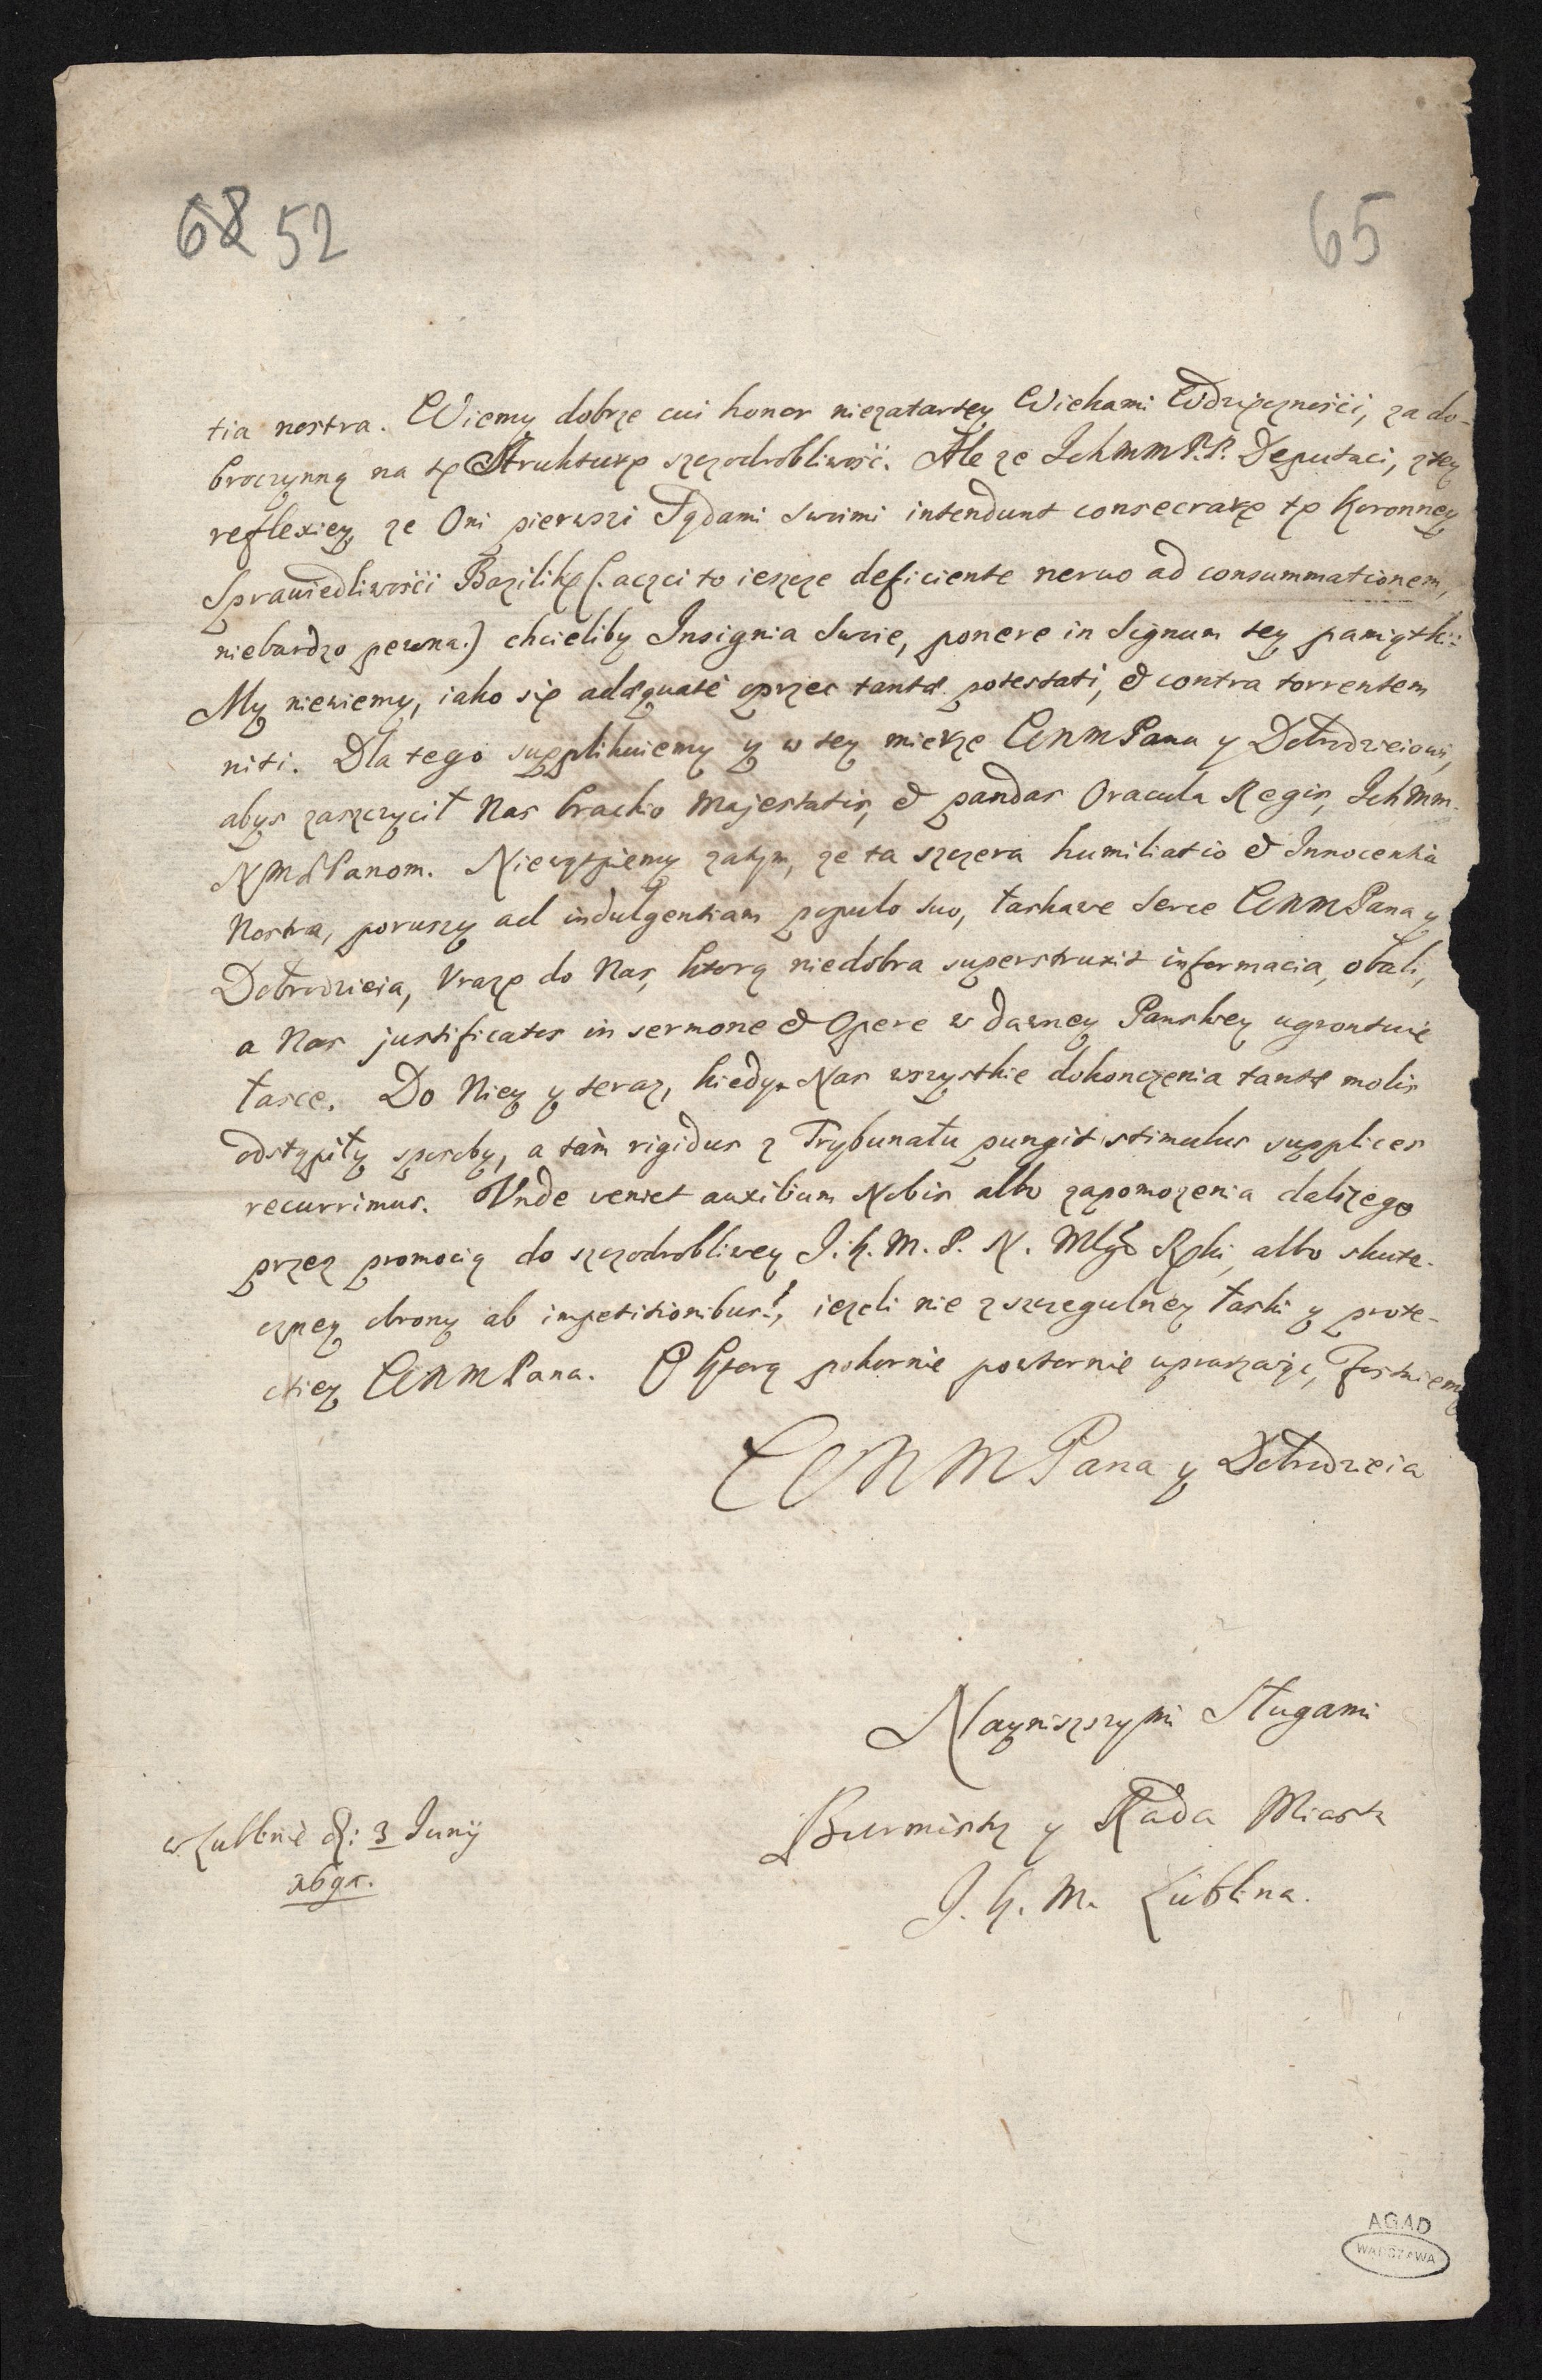 68 52
65
tia nostra. Wiemy dobrze cui honor niezatartey Wiekami Wdzięcznośći, za do-
broczynną na tę Strukturę szczodrobliwość. Ale ze Ichmm P.P. Deputaci, z tey
reflexiey, ze Oni pierwszi Sądami swimi intendunt consecrare tę Koronney
Sprawiedliwośći Bazilikę (. aczci to iescze deficiente nervo ad consummationem,
niebardzo pewna.) chcieliby Insignia Swoie, ponere in Signum tey pamiątki:
My niewiemy, iako się adæquatè oprzec tantæ potestati, & contra torrentem
niti. Dla tego supplikuiemy y w tey mierze WNMPanu y Dobrodzieiowi,
abys zaszczycił Nas brachio Majestatis, & pandas Oracula Regis, Ichmm
NMPanom. Niewątpiemy zatym, ze ta szczera humiliatio & Innocentia
Nostra, poruszy ad indulgentiam populo suo, łaskawe Serce WNMPana y
Dobrodzieia, Vrazę do Nas, ktorą niedobra superstruxit informacia, obali,
a Nas justificatos in sermone & Opere w dawney Panskiey ugrontuie
łasce. Do Niey y teraz, kiedy Nas wszystkie dokonczenia tantæ molis
odstąpiły sposoby, a tàm rigidus z Trybunału pungit stimulus supplices
recurrimus. Vnde veniet auxilium Nobis albo zapomozenia dalszego
przez promocią do szczodrobliwey J. K. M. P. N. Młgo Rki, albo skute-
czney obrony ab impetitionibus!, iezeli nie z szczegulney łaski y prote-
ctiey WNMPana. O Ktorą pokornie powtornie upraszaiąc, Zostaiemy
WNMPana y Dobrodzieia
Nayniszszymi Sługami
Burmistrz y Rada Miasta
J. K. M. Lublina.
w Lublinie d: 3 Junij
AGAD
WARSZAWA